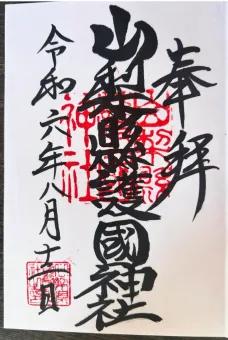 奉拝
山梨縣護國神社
令和六年八月十二日